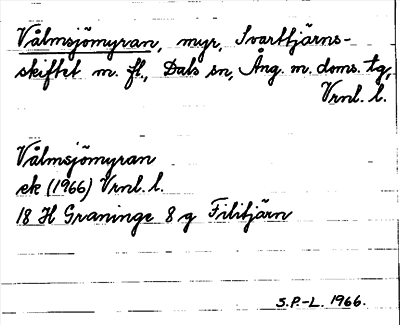 Vålmsjömyran, myr, Svarttjärns-
skiftet m. fl., Dals sn, Ång. m. doms. tg,
Vrnl. l.
Vålmsjömyran
ek (1966) Vrnl. l.
18 H Graninge 8 g Filitjärn
S.P.-L. 1966.